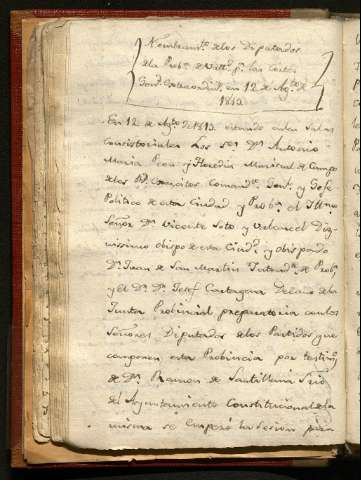 Nombramto. de los Diputados
de la Proba. de Valld. pa. las Cortes
en 12 de Agto. de
1813
En 12 de Agto. de 1813. estando en las Salas
Consistoriales los Ses. Dn. Antonio
Maria Peon y Heredia Mariscal de Campo
de los Rs. Exercitos Comande. Genl. y Gefe
Politico de esta Ciudad y Proba. el Illmo.
Señor Dn. Vicente Soto y Valcarcel Dig
nissimo obispo de esta Ciudd. y obispado
Dn. Juan de San Martin Intendte. de Proba.
y el Dr. Dn. Josef Cartagena Decano de la
Junta Probincial preparatoria con los
Señores Diputados de los Partidos que
componen esta Probincia por testimo.
de Dn. Ramon de Santillana Srio.
del Ayuntamiento Constitucional de la
misma se empezó la sesion para